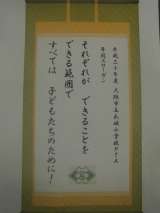 平成二十年度 大阪市立
年間スローガン
それぞれが できることを
できる範囲で
すべては 子どもたちのために!